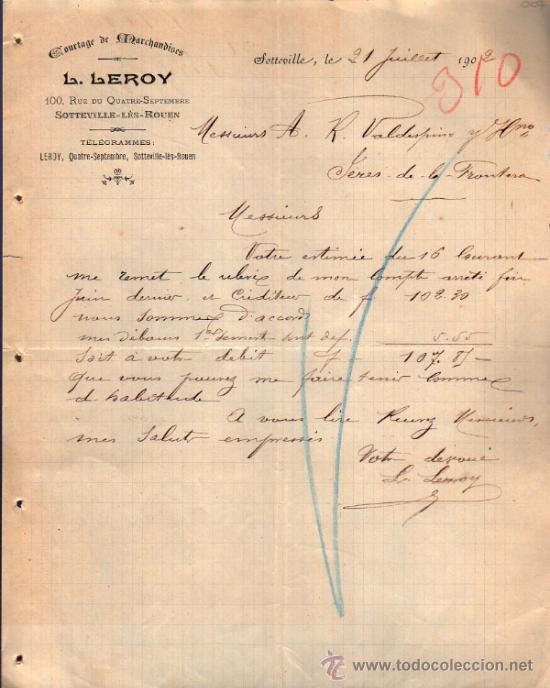 007
Courtage de Marchandises
L. LEROY
100, Rue du Quatre-Septembre
Sotteville-Lès-Rouen
TÉLÉGRAMMES:
LEROY, Quatre-Septembre, Sotteville-lès-Rouen
Sotteville, le 21 Juillet 1902
310
Messieurs A. R. Valdespino y Hno
Jeres-de-la-Frontera
Messieurs
Votre estimée du 16 Courant
me remet le relevé de mon Compte arrêté fin
Juin dernier et Créditeur de f 102.30
nous sommes d'accord
mes débours 1er Semest sont de f. 5.55
Soit à votre débit f 107.85
que vous pouvez me faire tenir comme
d'habitude
A vous lire Messieurs,
mes Saluts empressés
Votre dévoué
L. Leroy
www.todocoleccion.net